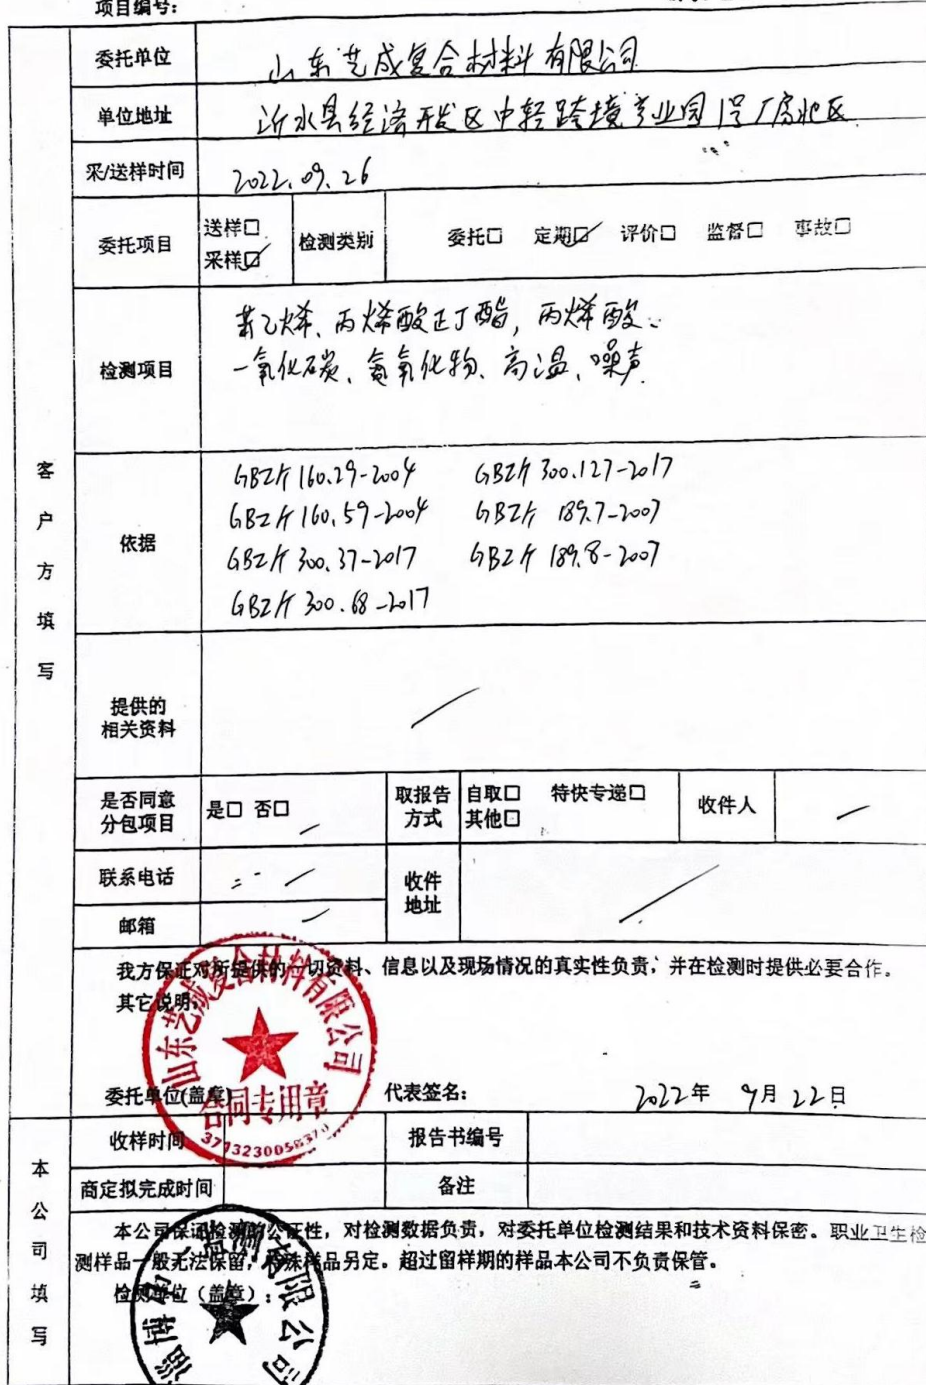 项目编号：
委托单位
山东艺成复合材料有限公司
单位地址
沂水县经济开发区中轻跨境产业园1号厂房北区
采/送样时间
2022.09.26
委托项目
送样□
采样☑
检测类别
委托□ 定期☑ 评价□ 监督□ 事故□
检测项目
苯乙烯、丙烯酸正丁酯，丙烯酸、
一氧化碳、氮氧化物、高温、噪声
客户方填写
依据
GBZ/T 160.29-2004 GBZ/T 300.127-2017
GBZ/T 160.59-2004 GBZ/T 189.7-2007
GBZ/T 300.37-2017 GBZ/T 189.8-2007
GBZ/T 300.68-2017
提供的
相关资料
是否同意
分包项目
是□ 否□
取报告
方式
自取□ 特快专递□
其他□
收件人
联系电话
收件
地址
邮箱
我方保证对所提供的一切资料、信息以及现场情况的真实性负责，并在检测时提供必要合作。
其它说明：
山东艺成复合材料有限公司
合同专用章
委托单位(盖章)
代表签名：
2022年 9月 22日
收样时间
报告书编号
商定拟完成时间
备注
本公司填写
本公司保证检测的公正性，对检测数据负责，对委托单位检测结果和技术资料保密。职业卫生检
测样品一般无法保留，特殊样品另定。超过留样期的样品本公司不负责保管。
检测单位（盖章）：